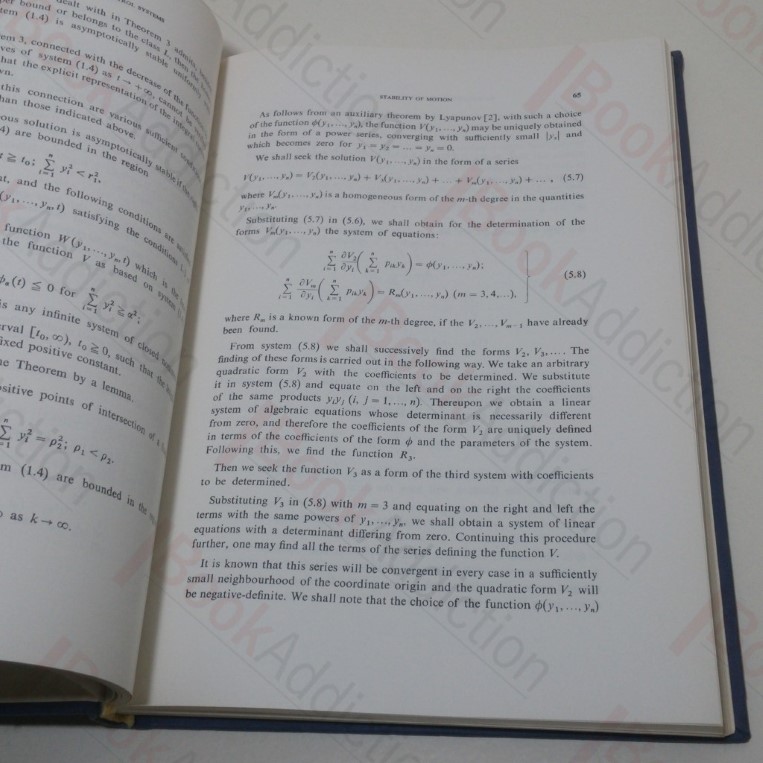 TROL SYSTEMS
dealt with in Theorem 3
per bound or belongs to the class L, then the
tem (1.4) is asymptotically stable
em 3, connected with the decrease of the
ves of system (1.4) as t → + ∞, cannot be
hat the explicit representation of the
wn.
this connection are various sufficient
han those indicated above.
ous solution is asymptotically stable if
4) are bounded in the region
≧ t₀; Σⁿᵢ₌₁ yᵢ² < r₁²,
st, and the following conditions are
(y₁, ..., yₙ, t) satisfying the conditions
function W(y₁, ..., yₙ, t) which is the
the function V as based on system
φₐ(t) ≦ 0 for Σⁿᵢ₌₁ yᵢ² ≦ α²;
is any infinite system of closed
erval [t₀, ∞), t₀ ≧ 0, such that the
ixed positive constant.
he Theorem by a lemma.
sitive points of intersection of a
Σ yᵢ² = ρ₂²; ρ₁ < ρ₂.
m (1.4) are bounded in the
o as k → ∞.
STABILITY OF MOTION 65
As follows from an auxiliary theorem by Lyapunov [2], with such a choice
of the function ϕ(y₁, ..., yₙ), the function V(y₁, ..., yₙ) may be uniquely obtained
in the form of a power series, converging with sufficiently small |yₛ| and
which becomes zero for y₁ = y₂ = ... = yₙ = 0.
We shall seek the solution V(y₁, ..., yₙ) in the form of a series
V(y₁, ..., yₙ) = V₂(y₁, ..., yₙ) + V₃(y₁, ..., yₙ) + ... + Vₘ(y₁, ..., yₙ) + ... , (5.7)
where Vₘ(y₁, ..., yₙ) is a homogeneous form of the m-th degree in the quantities
y₁, ..., yₙ.
Substituting (5.7) in (5.6), we shall obtain for the determination of the
forms Vₘ(y₁, ..., yₙ) the system of equations:
Σⁿᵢ₌₁ ∂V₂/∂yᵢ ( Σⁿₖ₌₁ pᵢₖyₖ ) = ϕ(y₁, ..., yₙ);
Σⁿᵢ₌₁ ∂Vₘ/∂yᵢ ( Σⁿₖ₌₁ pᵢₖyₖ ) = Rₘ(y₁, ..., yₙ) (m = 3, 4, ...). (5.8)
where Rₘ is a known form of the m-th degree, if the V₂, ..., Vₘ₋₁ have already
been found.
From system (5.8) we shall successively find the forms V₂, V₃, .... The
finding of these forms is carried out in the following way. We take an arbitrary
quadratic form V₂ with the coefficients to be determined. We substitute
it in system (5.8) and equate on the left and on the right the coefficients
of the same products yᵢyⱼ (i, j = 1, ..., n). Thereupon we obtain a linear
system of algebraic equations whose determinant is necessarily different
from zero, and therefore the coefficients of the form V₂ are uniquely defined
in terms of the coefficients of the form ϕ and the parameters of the system.
Following this, we find the function R₃.
Then we seek the function V₃ as a form of the third system with coefficients
to be determined.
Substituting V₃ in (5.8) with m = 3 and equating on the right and left the
terms with the same powers of y₁, ..., yₙ, we shall obtain a system of linear
equations with a determinant differing from zero. Continuing this procedure
further, one may find all the terms of the series defining the function V.
It is known that this series will be convergent in every case in a sufficiently
small neighbourhood of the coordinate origin and the quadratic form V₂ will
be negative-definite. We shall note that the choice of the function ϕ(y₁, ..., yₙ)
BookAddiction